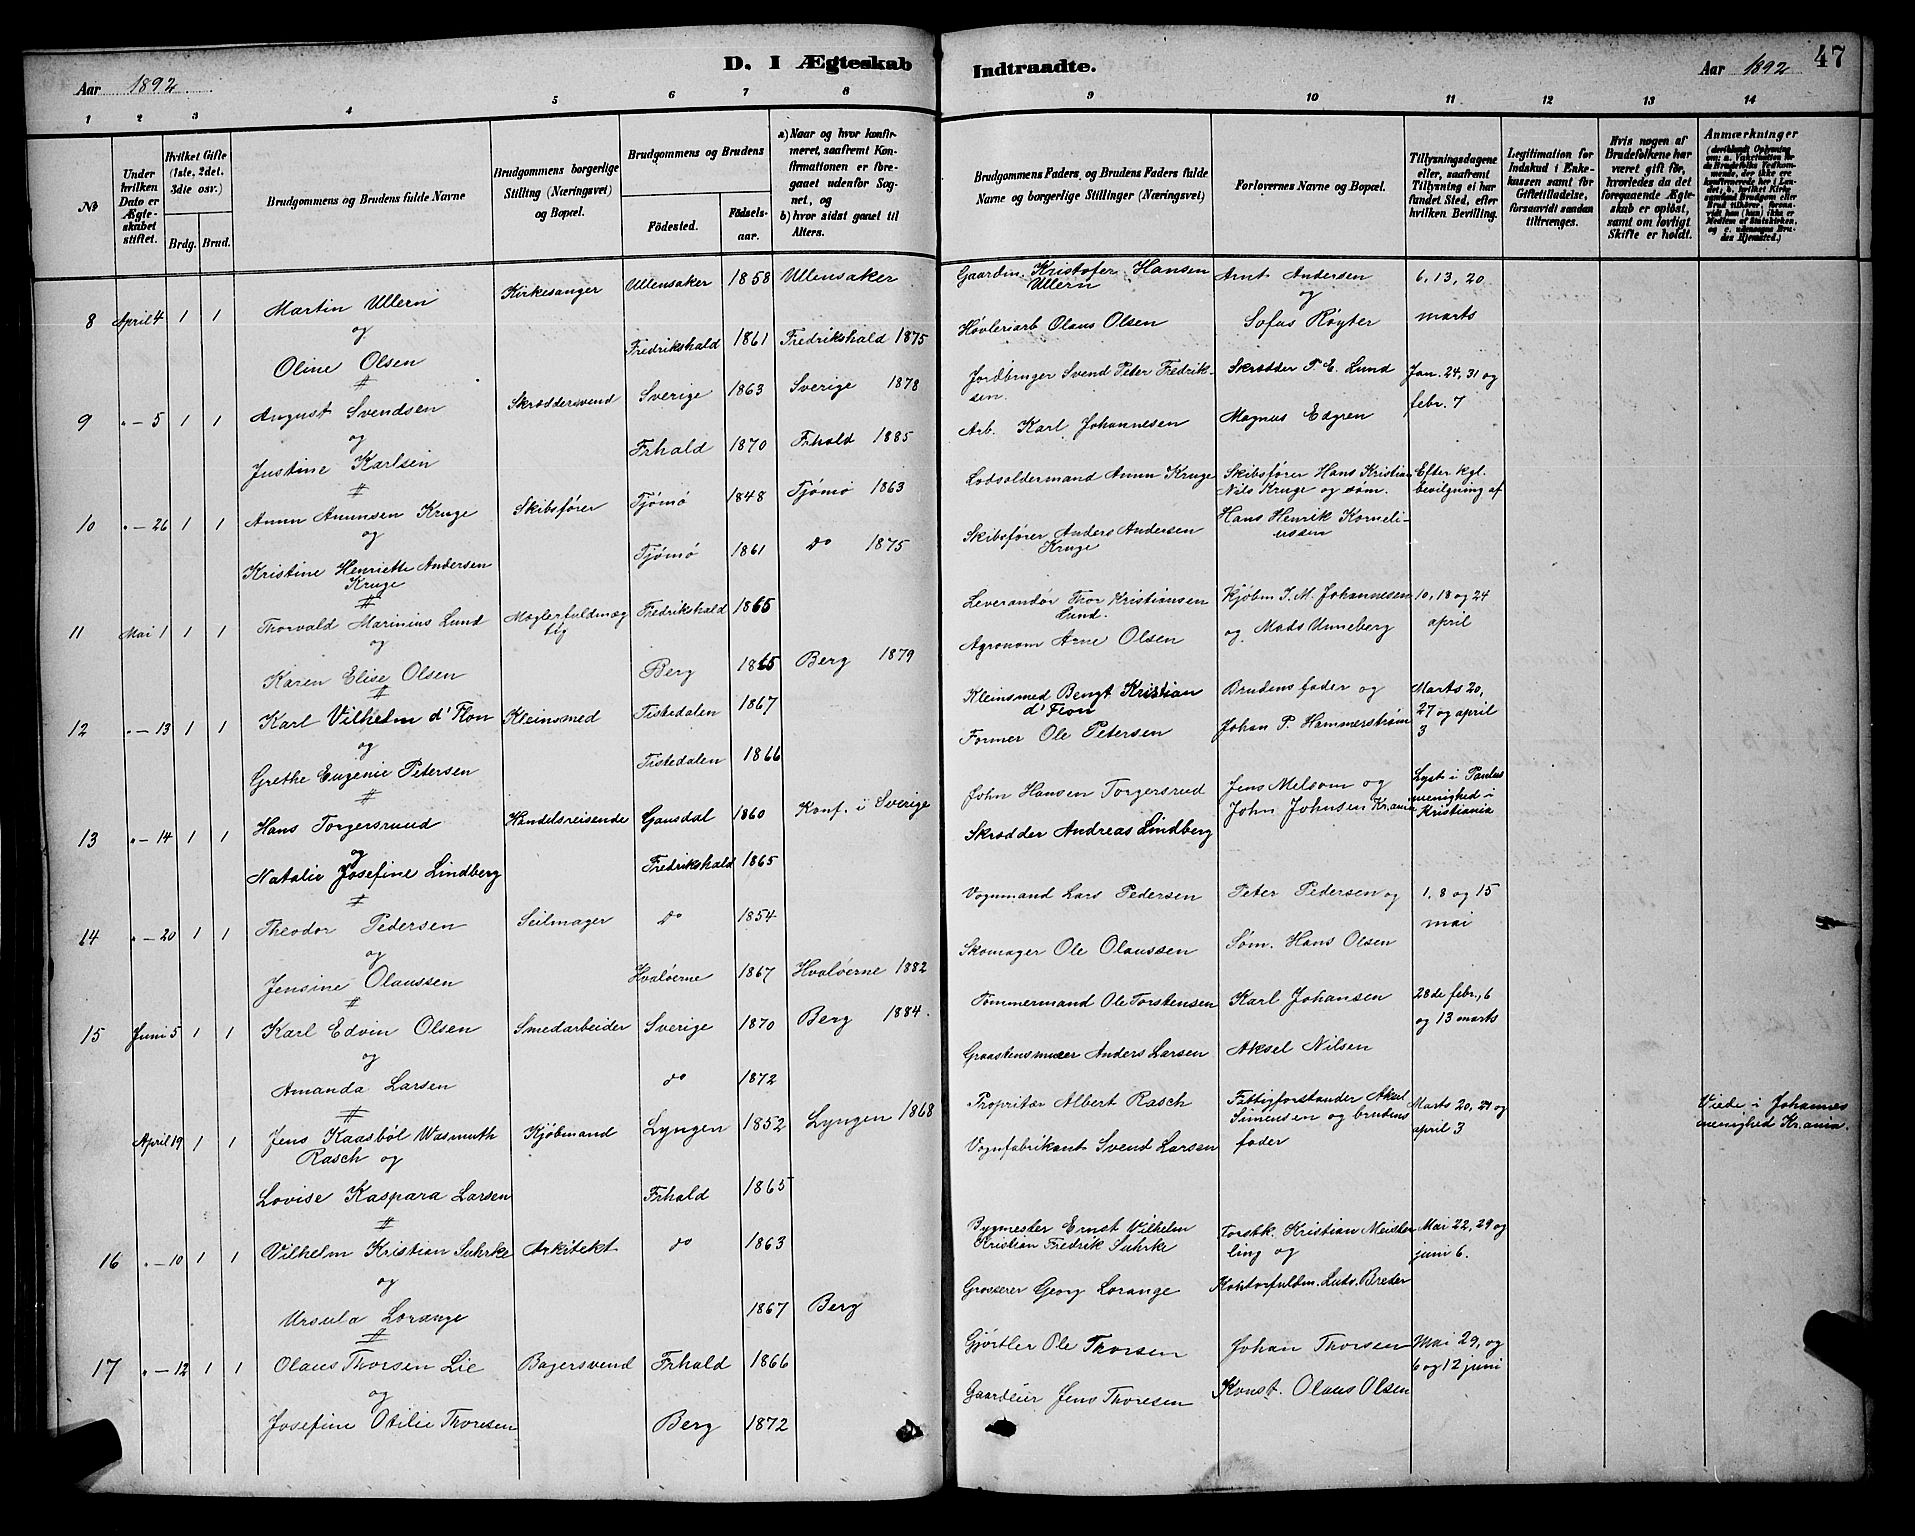 D. I Ægteskab Indtraadte.
47
Aar 1892
Aar 1892
1 2 3 4 5 6 7 8 9 10 11 12 13 14
No
Under hvilken Dato er Ægteskabet stiftet.
Hvilket Gifte (1ste, 2det, 3die osv.)
Brdg. Brud.
Brudgommens og Brudens fulde Navne
Brudgommens borgerlige Stilling (Næringsvei) og Bopæl.
Brudgommens og Brudens
Fødested. Fødselsaar.
a) Naar og hvor konfirmeret, saafremt Konfirmationen er foregaaet udenfor Sognet, og
b) hvor sidst gaaet til Alters.
Brudgommens Faders og Brudens Faders fulde Navne og borgerlige Stillinger (Næringsvei)
Forlovernes Navne og Bopæl.
Tillysningsdagene eller, saafremt Tillysning ei har fundet Sted, efter hvilken Bevilling.
Legitimation for Indskud i Enkekassen samt for Giftetilladelse, forsaavidt saadan tiltrænges.
Hvis nogen af Brudefolkene har været gift før, hvorledes da det foregaaende Ægteskab er opløst, samt om lovligt Skifte er holdt.
Anmærkninger
8 April 4 1 1 Martin Ullern Kirkesanger Ullensaker 1858 Ullensaker Gaardm. Kristofer Hansen Ullern Arnt Andersen 6, 13, 20
og og marts
Oline Olsen Fredrikshald 1861 Fredrikshald 1875 Høvleriarb Olaus Olsen Sofus Røyter
9 " - 5 1 1 August Svendsen Skræddersvend Sverige 1863 Sverige 1878 Jordbruger Svend Peter Fredriksen. Skrædder P. E. Lund Jan. 24, 31 og febr. 7
og
Justine Karlsen Frhald 1870 Frhald 1885 Arb. Karl Johannesen Magnus Edgren
10 " - 26 1 1 Anun Anunsen Kruge Skibsfører Tjømø 1848 Tjømø 1863 Lodsoldermand Anun Kruge Skibsfører Hans Kristian Nils Kruge og søm. Efter kgl. bevilgning af
og
Kristine Henriette Andersen Kruge Tjømø 1861 do 1875 Skibsfører Anders Andersen Kruge Hans Henrik Korneliussen
11 Mai 1 1 1 Thorvald Marinius Lund Mæglerfuldmægtig Fredrikshald 1865 Leverandør Thor Kristiansen Lund. Kjøbm J. M. Johannesen 10, 18 og 24 april
og
Karen Elise Olsen Berg 1865 Berg 1879 Agronom Arne Olsen og Mads Unneberg
12 " - 13 1 1 Karl Vilhelm d'Flon Kleinsmed Tistedalen 1867 Kleinsmed Bengt Kristian d'Flon Brudens fader og Marts 20, 27 og april 3
og
Grethe Eugenie Petersen Tistedalen 1866 Former Ole Petersen Johan P. Hammerstrøm
13 " - 14 1 1 Hans Torgersruud Handelsreisende Gausdal 1860 Konf. i Sverige John Hansen Torgersrud Jens Melsom og John Johnsen Kr.ania Lyst i Paulus menighed i Kristiania
og
Natalie Josefine Lindberg Fredrikshald 1865 Skrædder Andreas Lindberg
14 " - 20 1 1 Theodor Pedersen Seilmager do 1854 Vognmand Lars Pedersen Peter Pedersen og 1, 8 og 15 mai
og
Jensine Olaussen Hvaløerne 1867 Hvaløerne 1882 Skomager Ole Olaussen Søm. Hans Olsen
15 Juni 5 1 1 Karl Edvin Olsen Smedarbeider Sverige 1870 Berg 1884. Tømmermand Ole Torstensen Karl Johansen 28de febr., 6 og 13 marts
og
Amanda Larsen do 1872 Graastensmurer Anders Larsen Aksel Nilsen
April 19 1 1 Jens Kaasbøl Wasmuth Rasch og Kjøbmand Lyngen 1852 Lyngen 1868 Propritær Albert Rasch Fattigforstander Aksel Simensen og brudens fader Marts 20, 27 og april 3 Viede i Johannes menighed Kr.ania.
Lovise Kaspara Larsen Frhald 1865 Vognfabrikant Svend Larsen
16 " - 10 1 1 Vilhelm Kristian Suhrke Arkitekt do 1863 Bygmester Ernst Vilhelm Kristian Fredrik Suhrke Forstk. Kristian Meisterling og Mai 22, 29 og juni 6.
og
Ursula Lorange 1867 Berg Grosserer Georg Lorange Kontorfuldm. Ludv. Breder
17 " - 12 1 1 Olaus Thorsen Lie Bagersvend Frhald 1866 Gjørtler Ole Thorsen Johan Thorsen Mai 29, og 6 og 12 juni
og
Josefine Otilie Thoresen Berg 1872 Gaardeier Jens Thoresen Konst. Olaus Olsen